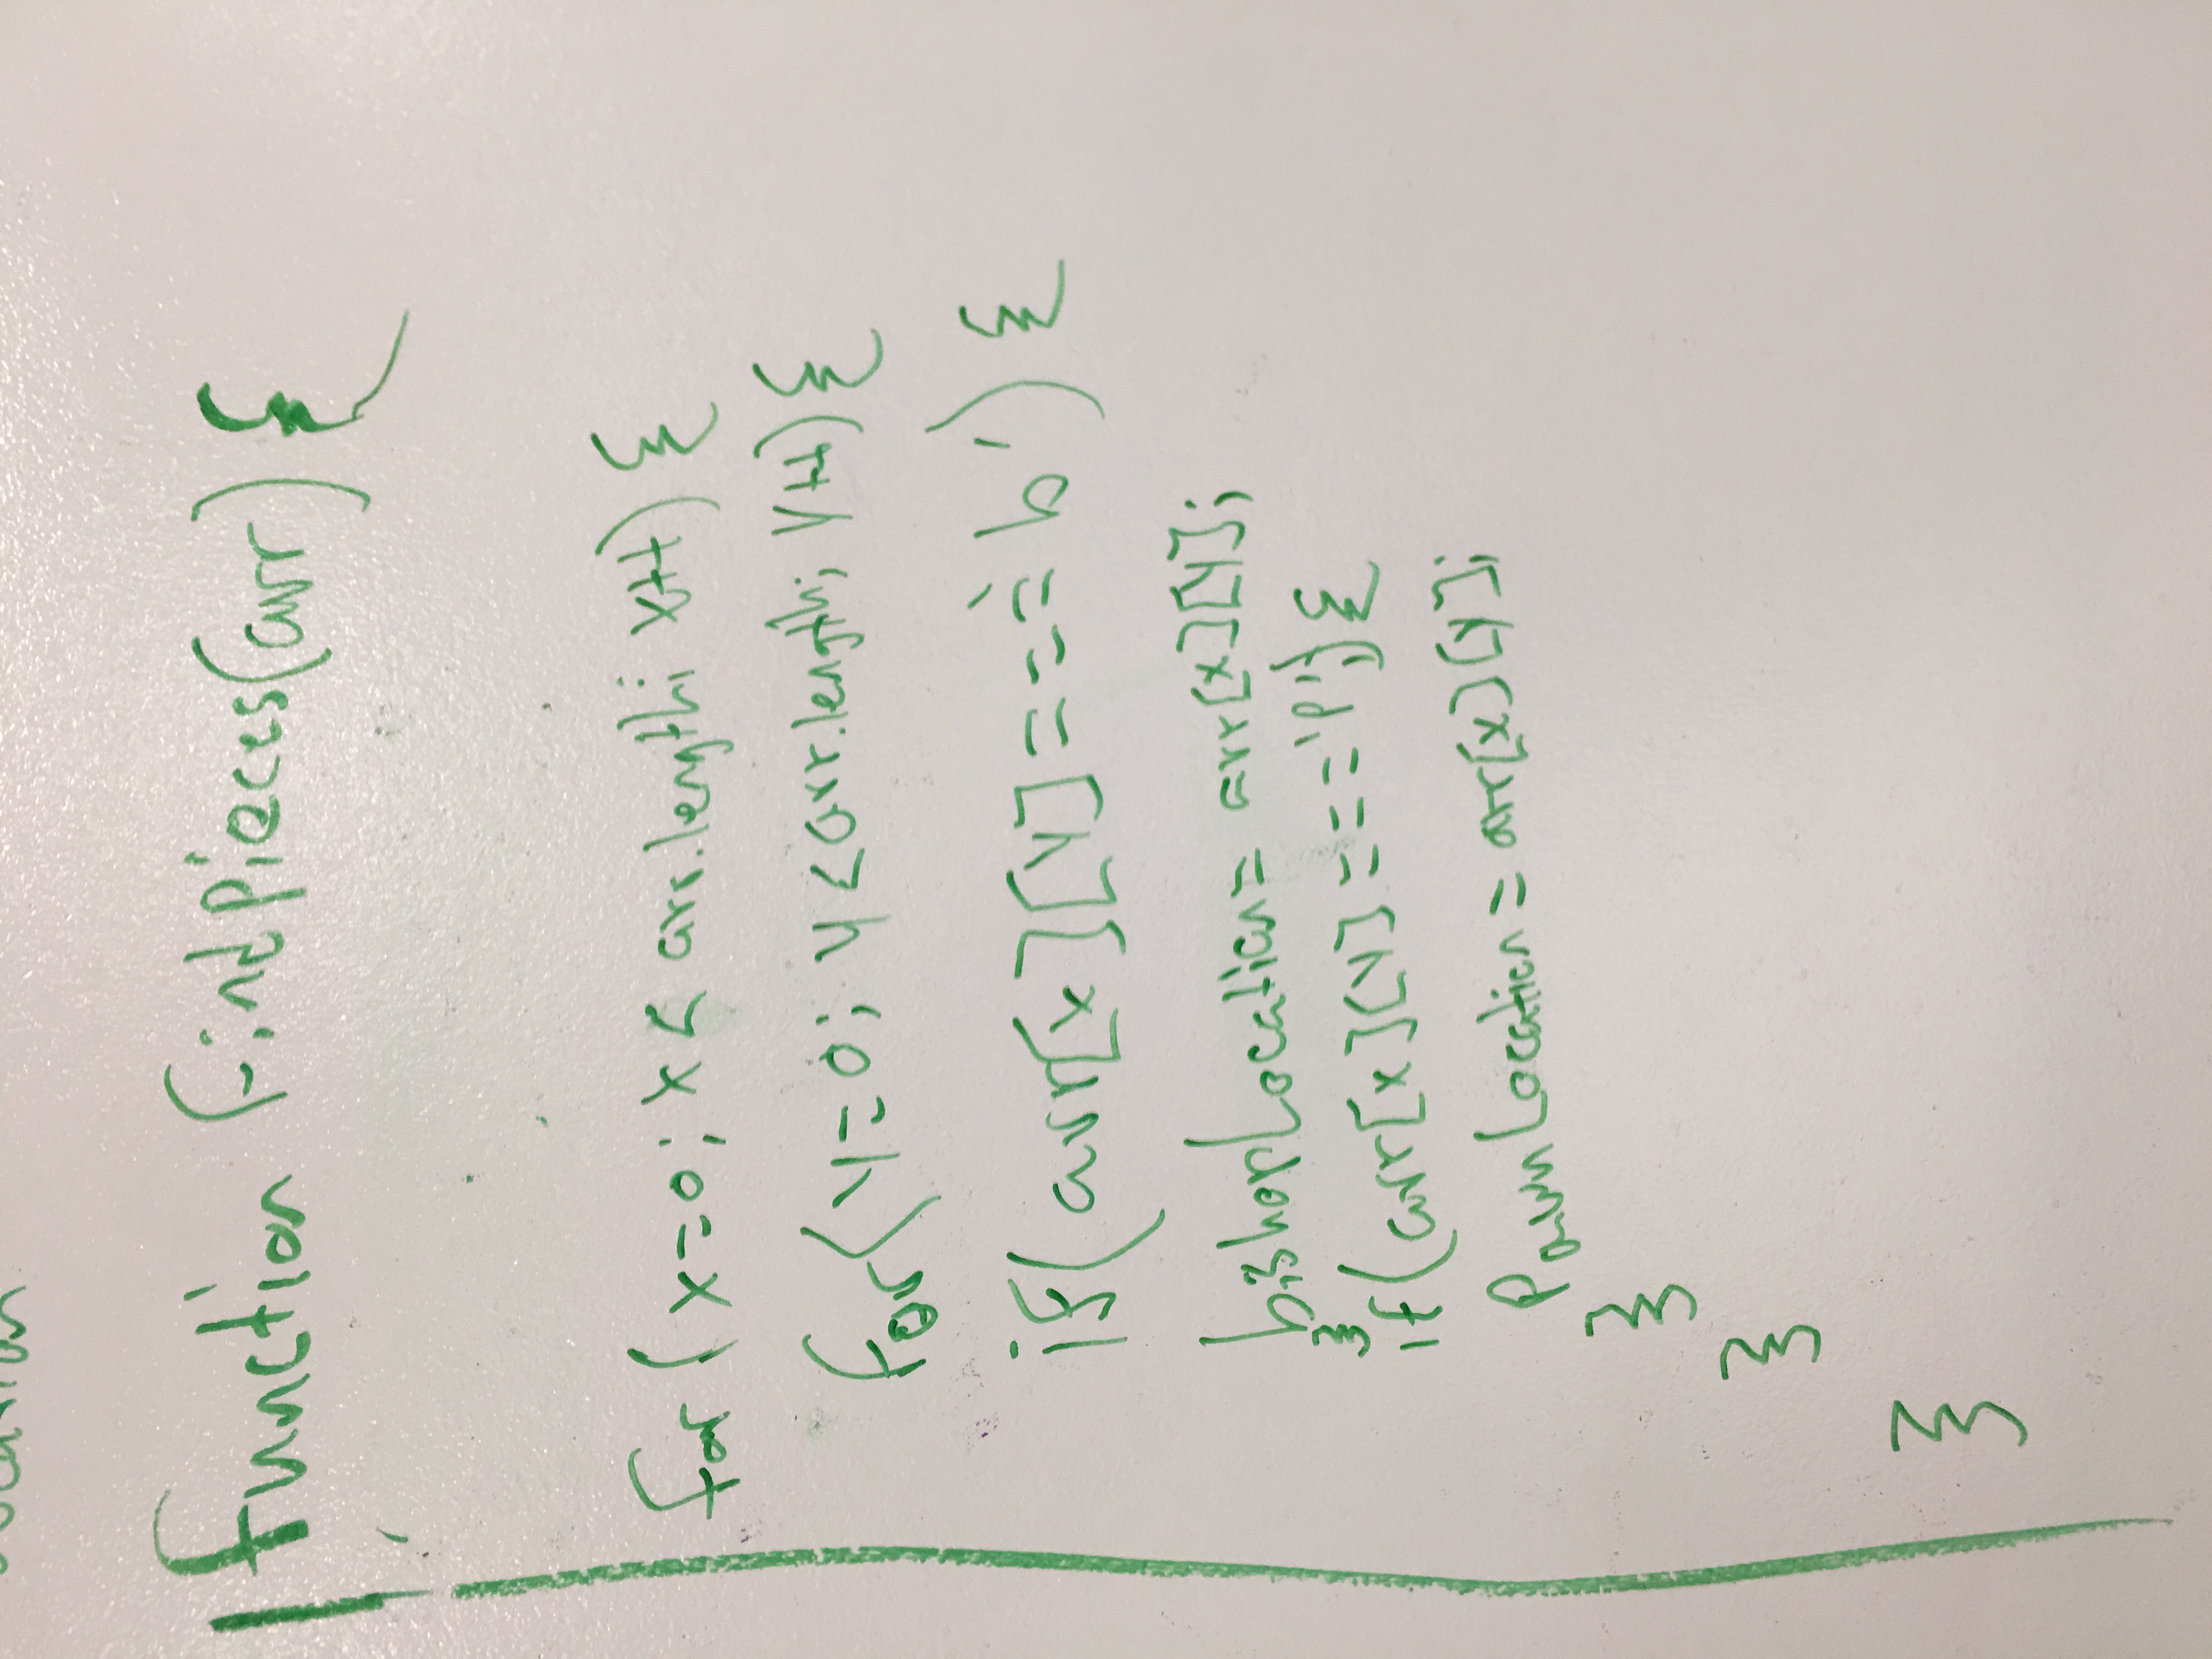 location
function findPieces(arr) {
for ( x=0; x < arr.length; x++) {
for( y=0; y < arr.length; y++) {
if( arr[x][y] === 'b') {
bishopLocation = arr[x][y];
}
if(arr[x][y] === 'P') {
PawnLocation = arr[x][y];
}
}
}